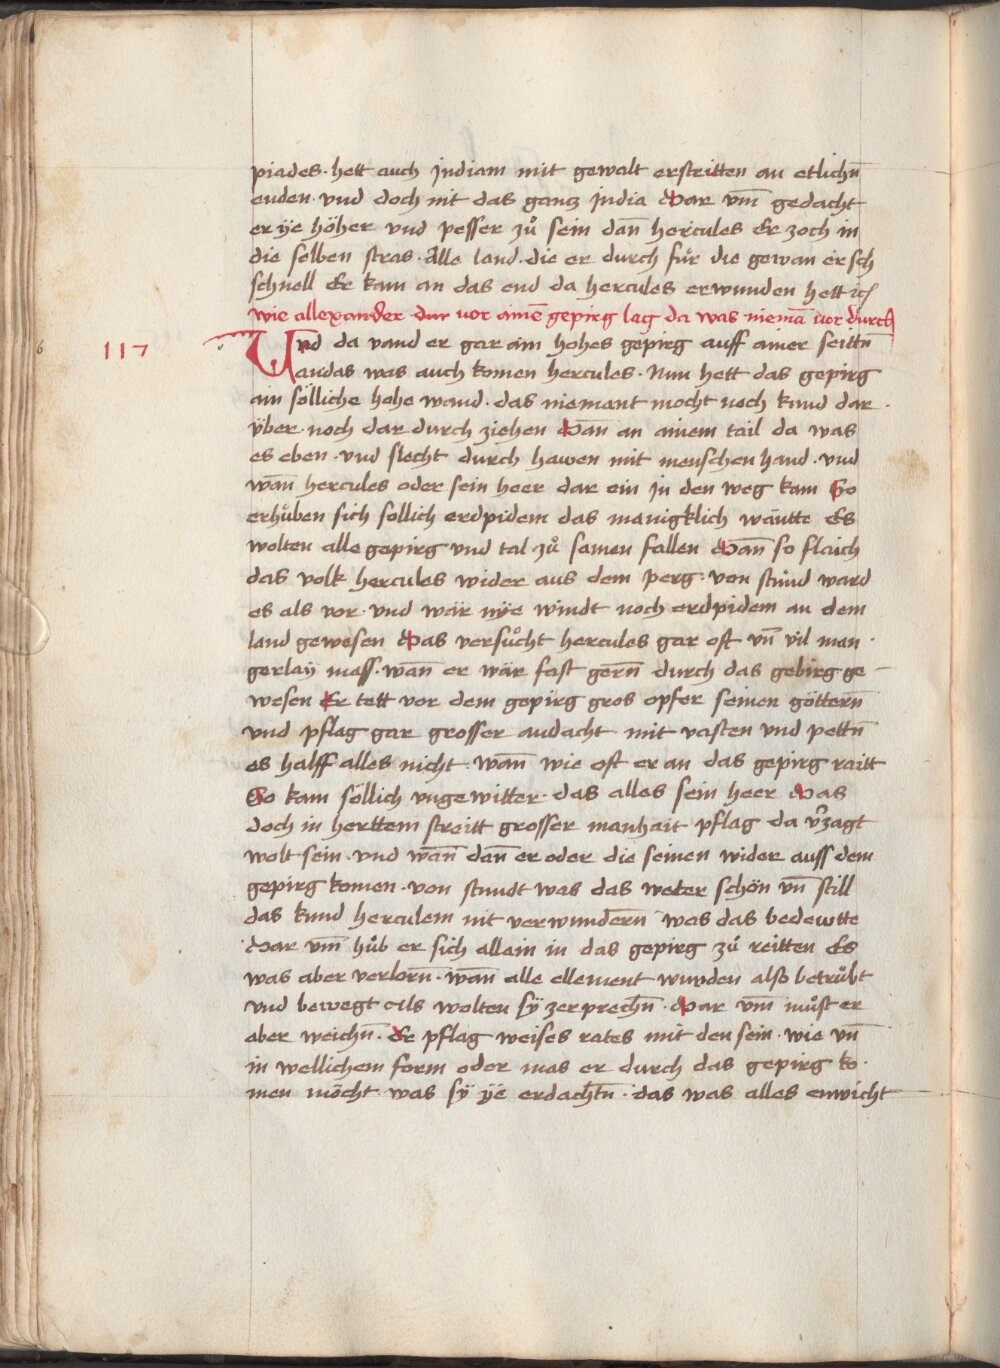 piades · hett auch Jndiam mit gewalt erstritten an etlichn̄
enden · vnd doch nit das gancz Jndia Dar vm̄ gedacht
er ÿe höher vnd pesser zů sein dan̄ hercules Er zoch in
die selben stras · Alle land · die er durch für die gewan er sch
schnell Er kam an das end da hercules erwunden hett ic̃
wie allexander dur vor aine͞ gepirg lag da was niema͞ vor durch
117 Vnd da vand er gar ain hohes gepirg auff ainer seittn̄
an das was auch komen hercules · Nun hett das gepirg
ain sölliche hohe wand · das niemant mocht noch kund dar ·
vber · noch dar durch ziehen Dan̄ an ainem tail da was
es eben · vnd slecht durch hawen mit menschen hand · vnd
wan̄ hercules oder sein heer dar ein Jn den weg kam So
erhůben sich sollich erdpidem das manigklich wäntte Es
wolten alle gepirg vnd tal zů samen fallen Wan̄ so flaich
das volk hercules wider aus dem perg · von stůnd ward
es als vor · vnd wär nÿe windt noch erdpidem an dem
land gewesen Das versůcht hercules gar oft vn̄ vil man ·
gerlaÿ mass · wan̄ er wär fast gern̄ durch das gebirg ge
wesen Er tett vor dem gepirg gros opfer seinen göttern̄
vnd pflag gar grosser andacht mit vasten vnd pettn̄
es halff alles nicht · wan̄ wie oft er an das gepirg raitt
So kam söllich vngewitter · das alles sein heer Das
doch in herttem streitt grosser manhait pflag da v̉zagt
wolt sein · vnd wan̄ dan̄ er oder die seinen wider auss dem
gepirg komen · von stundt was das weter schön vn̄ still
das kund herculem nit verwundern̄ was das bedewtte
Dar vm̄ hůb er sich allain in das gepirg zů reitten Es
was aber verlorn̄ · wan̄ alle ellement wurden also betrůbt
vnd bewegt Als wolten sÿ zerprechn̄ · Dar vm̄ můst er
aber weichn̄ · Er pflag weises rates mit den sein · wie vn̄
in wellichem form oder mas er durch das gepirg ko ·
men möcht · was sÿ ÿe erdachtn̄ · das was alles enwicht